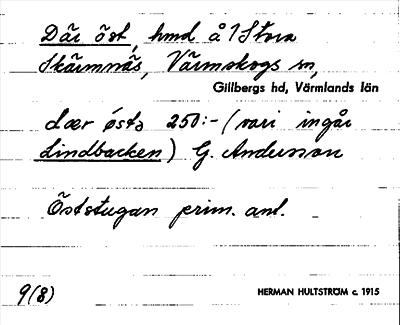 Där öst, hmd å 1 Stora
Skärmnäs, Värmskogs sn,
Gillbergs hd, Värmlands län
dær östə 250:- (vari ingår
Lindbacken) G. Andersson
Öststugan prim. anl.
9(8)
HERMAN HULTSTRÖM c. 1915